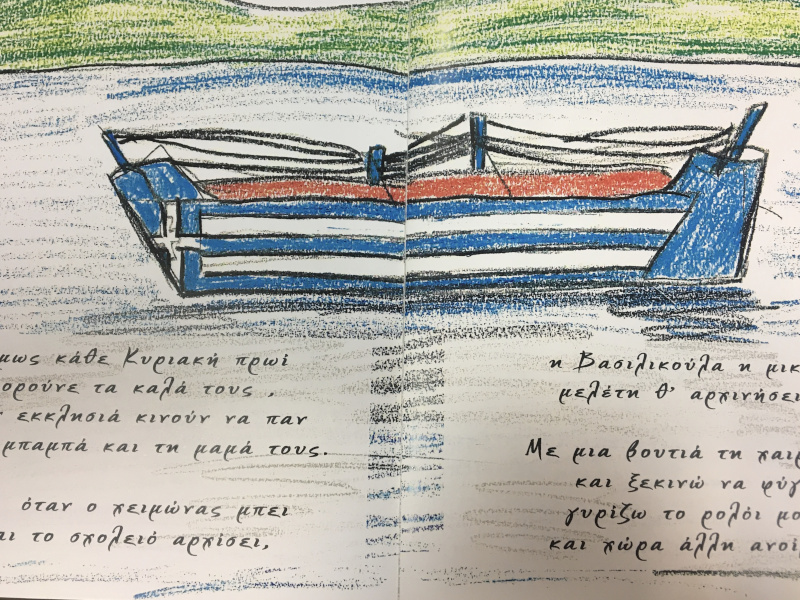 κάθε Κυριακή πρωί
τα καλά τους ,
εκκλησιά κινούν να παν
μπαμπά και τη μαμά τους.
όταν ο χειμώνας μπει
το σχολειό αρχίσει,
η Βασιλικούλα η μικ
μελέτη θ' αρχινήσει
Με μια βουτιά τη χαιρ
και ξεκινώ να φύγ
γυρίζω το ρολόι μο
και χώρα άλλη ανοί